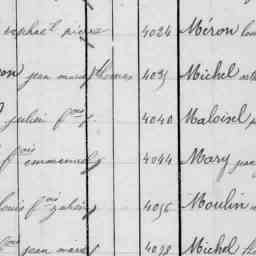 raphael pierre 4024 Méron
jean marie thomas 4035 Michel
julien f.ois 4040 Maloisel
f.ois emmanuel 4044 Mary jean
louis f.ois 4056 Moulin
f.ois jean marie 4098 Michel